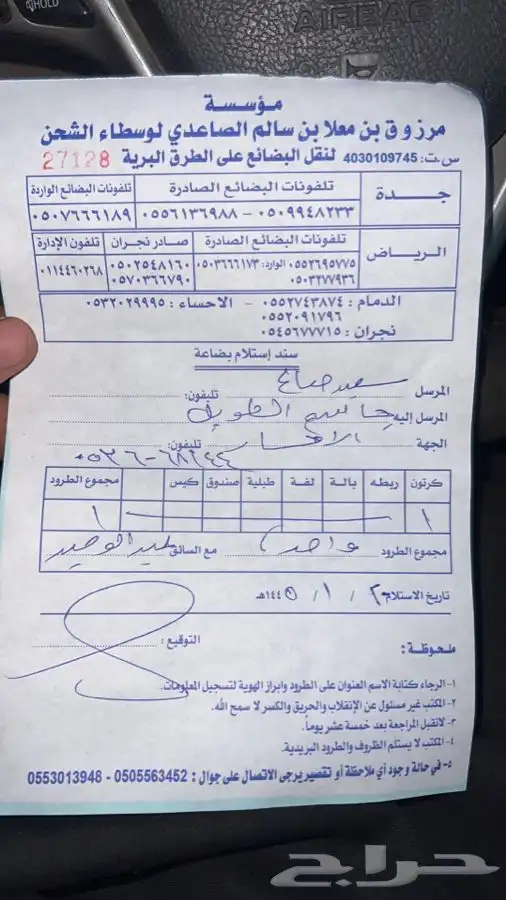 HOLD
AIRBAG
مؤسسة
مرزوق بن معلا بن سالم الصاعدي لوسطاء الشحن
س.ت: 4030109745 لنقل البضائع على الطرق البرية 27128
جـدة تلفونات البضائع الصادرة تلفونات البضائع الواردة
٠٥٠٩٩٤٨٢٣٣ - ٠٥٥٦١٣٦٩٨٨ ٠٥٠٧٦٦٦١٨٩
الرياض تلفونات البضائع الصادرة صادر نجران تلفون الإدارة
٠٥٥٢٦٩٥٧٧٥ الوارد: ٠٥٠٣٦٦٦١٧٣ ٠٥٠٢٥٤٨١٦٠ ٠١١٤٤٦٠٢٦٨
٠٥٠٣٢٧٧٩٣٦ ٠٥٧٠٣٦٦٧٩٠
الدمام : ٠٥٥٢٧٤٣٨٧٤ - الاحساء : ٠٥٣٢٠٢٩٩٩٥
٠٥٥٢٠٩١٧٩٦
نجران : ٠٥٤٥٦٧٧٧١٥
سند إستلام بضاعة
المرسل سعيد تليفون:
المرسل إليه جاسم الطويل
الجهة الاحساء تليفون:
كرتون ربطه بالة لفة طبلية صندوق كيس مجموع الطرود
١ ١
مجموع الطرود واحد مع السائق
تاريخ الاستلام ٢ / ١ / ١٤٤٥هـ
التوقيع :
ملحوظة :
١- الرجاء كتابة الاسم العنوان على الطرود وابراز الهوية لتسجيل المعلومات.
٢- المكتب غير مسئول عن الإنقلاب والحريق والكسر لا سمح الله.
٣- لانقبل المراجعة بعد خمسة عشر يوماً.
٤- المكتب لا يستلم الظروف والطرود البريدية.
٥- في حالة وجود أي ملاحظة أو تقصير يرجى الاتصال على جوال : 0505563452 - 0553013948
حراج